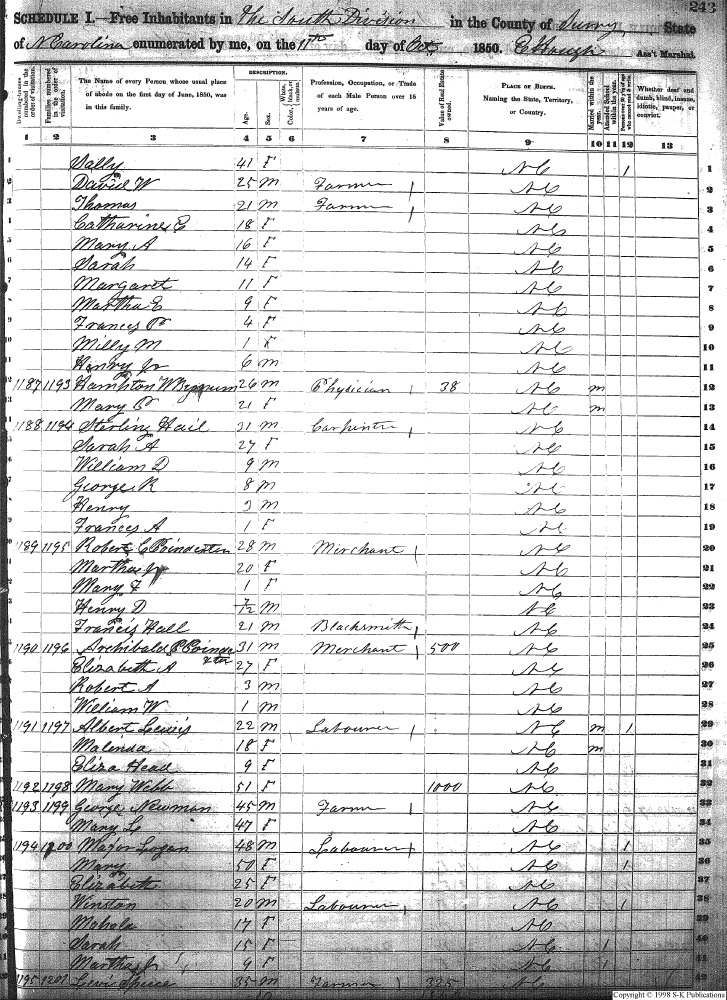 243
SCHEDULE I.—Free Inhabitants in The South Division in the County of Surry State
of N Carolina enumerated by me, on the 11th day of Oct 1850. Ass't Marshal.
Dwelling-houses numbered in the order of visitation.
Families numbered in the order of visitation.
The Name of every Person whose usual place of abode on the first day of June, 1850, was in this family.
DESCRIPTION.
Age.
Sex.
Color, White, black, or mulatto.
Profession, Occupation, or Trade of each Male Person over 15 years of age.
Value of Real Estate owned.
PLACE OF BIRTH. Naming the State, Territory, or Country.
Married within the year.
Attended School within the year.
Whether deaf and dumb, blind, insane, idiotic, pauper, or convict.
1 2 3 4 5 6 7 8 9 10 11 12 13
1 Sally 41 F NC 1 1
2 David W 25 M Farmer NC 2
3 Thomas 21 M Farmer NC 3
4 Catharine E 18 F NC 4
5 Mary A 16 F NC 5
6 Sarah 14 F NC 6
7 Margaret 11 F NC 7
8 Martha E 9 F NC 8
9 Frances P 4 F NC 9
10 Milly M 1 F NC 10
11 Henry Jr 6 M NC 11
12 1187 1193 Hampton W Bynum 26 M Physician 38 NC m 12
13 Mary P 21 F NC m 13
14 1188 1194 Sterlin Hail 31 M Carpinter NC 14
15 Sarah A 27 F NC 15
16 William D 9 M NC 16
17 George R 8 M NC 17
18 Henry 3 M NC 18
19 Frances A 1 F NC 19
20 1189 1195 Robert C Poindexter 28 M Merchant NC 20
21 Martha 20 F NC 21
22 Mary F 1 F NC 22
23 Henry D 7/12 M NC 23
24 Francis Hall 21 M Blacksmith NC 24
25 1190 1196 Archibald P Poindexter 31 M Merchant 500 NC 25
26 Elizabeth A 27 F NC 26
27 Robert A 3 M NC 27
28 William W 1 M NC 28
29 1191 1197 Albert Lewis 22 M Labourer NC m 1 29
30 Malinda 18 F NC m 30
31 Eliza Head 9 F NC 31
32 1192 1198 Mary Webb 51 F 1000 NC 32
33 1193 1199 George Newman 45 M Farmer NC 33
34 Mary L 47 F NC 34
35 1194 1200 Major Logan 48 M Labourer NC 1 35
36 Mary 50 F NC 1 36
37 Elizabeth 25 F NC 37
38 Winston 20 M Labourer NC 1 38
39 Mahala 17 F NC 39
40 Sarah 15 F NC 1 40
41 Martha J 9 F NC 1 41
42 1195 1201 Lewis 35 M Farmer 325 NC 42
Copyright © 1998 S-K Publications